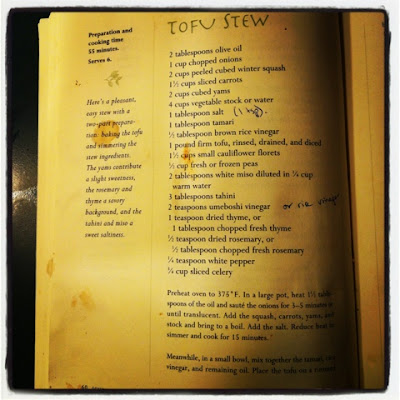 Preparation and
cooking time
55 minutes.
Serves 6.
Here's a pleasant,
easy stew with a
two-part prepara-
tion: baking the tofu
and simmering the
stew ingredients.
The yams contribute
a slight sweetness,
the rosemary and
thyme a savory
background, and the
tahini and miso a
sweet saltiness.
TOFU STEW
2 tablespoons olive oil
1 cup chopped onions
2 cups peeled cubed winter squash
1½ cups sliced carrots
2 cups cubed yams
4 cups vegetable stock or water
1 tablespoon salt
1 tablespoon tamari
½ tablespoon brown rice vinegar
1 pound firm tofu, rinsed, drained, and diced
1½ cups small cauliflower florets
½ cup fresh or frozen peas
2 tablespoons white miso diluted in ¼ cup
warm water
3 tablespoons tahini
2 teaspoons umeboshi vinegar or rice vinegar
1 teaspoon dried thyme, or
1 tablespoon chopped fresh thyme
½ teaspoon dried rosemary, or
½ tablespoon chopped fresh rosemary
¼ teaspoon white pepper
¾ cup sliced celery
Preheat oven to 375°F. In a large pot, heat 1½ table-
spoons of the oil and sauté the onions for 3–5 minutes
until translucent. Add the squash, carrots, yams, and
stock and bring to a boil. Add the salt. Reduce heat to
simmer and cook for 15 minutes.
Meanwhile, in a small bowl, mix together the tamari, rice
vinegar, and remaining oil. Place the tofu on a